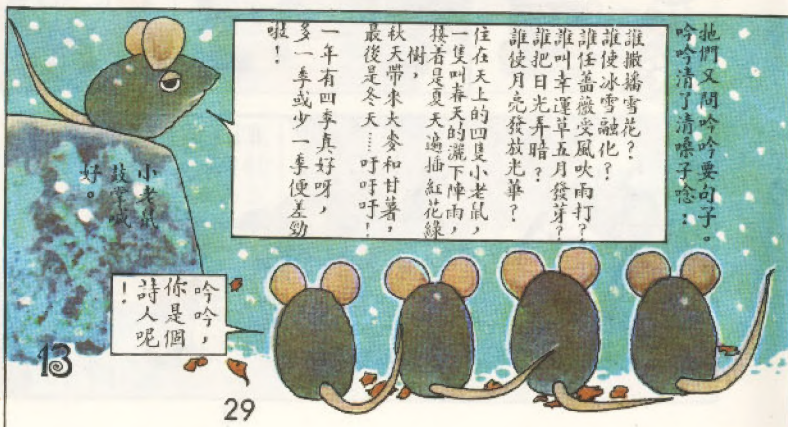 牠們又問吟吟要句子。
吟吟清了清嗓子唸：
誰撒播雪花？
誰使冰雪融化？
誰任薔薇受風吹雨打？
誰叫幸運草五月發芽？
誰把日光弄暗？
誰使月亮發放光華？
住在天上的四隻小老鼠，
一隻叫春天的灑下陣雨，
接着是夏天遍插紅花綠
樹，
秋天帶來大麥和甘薯，
最後是冬天……吁吁吁！
一年有四季真好呀，
多一季或少一季便差勁
啦！
小老鼠
鼓掌喊
好。
吟吟，
你是個
詩人呢
！
13
29